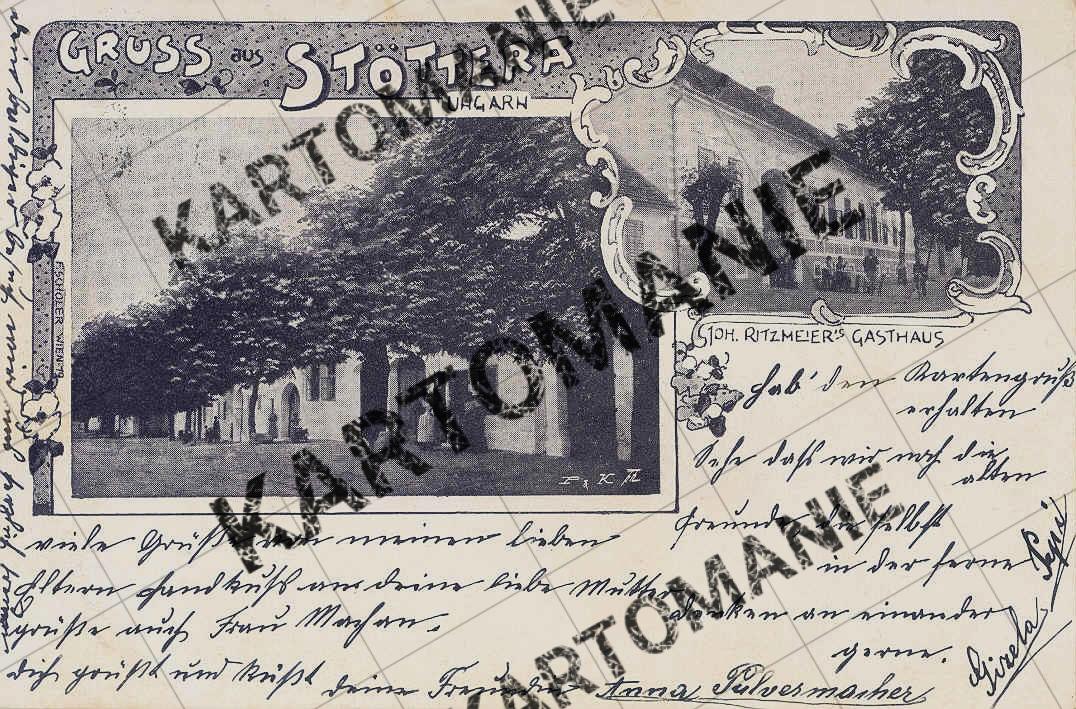 GRUSS aus STÖTTERA
UNGARN
F. SCHÖLER WIEN
JOH. RITZMEIER'S GASTHAUS
P & K
Hab' den Kartengruß
erhalten
Sehe daß wir noch die
alten
Freunde die selbst
in der ferne
denken an einander
gerne.
viele Grüße von meinen lieben
Eltern Handkuß an deine liebe Mutter
grüße auch Frau Machan.
dich grüßt und küßt
deine Freundin Anna Pulvermacher
Gizela Pepi
KARTOMANIE
KARTOMANIE
KARTOMANIE